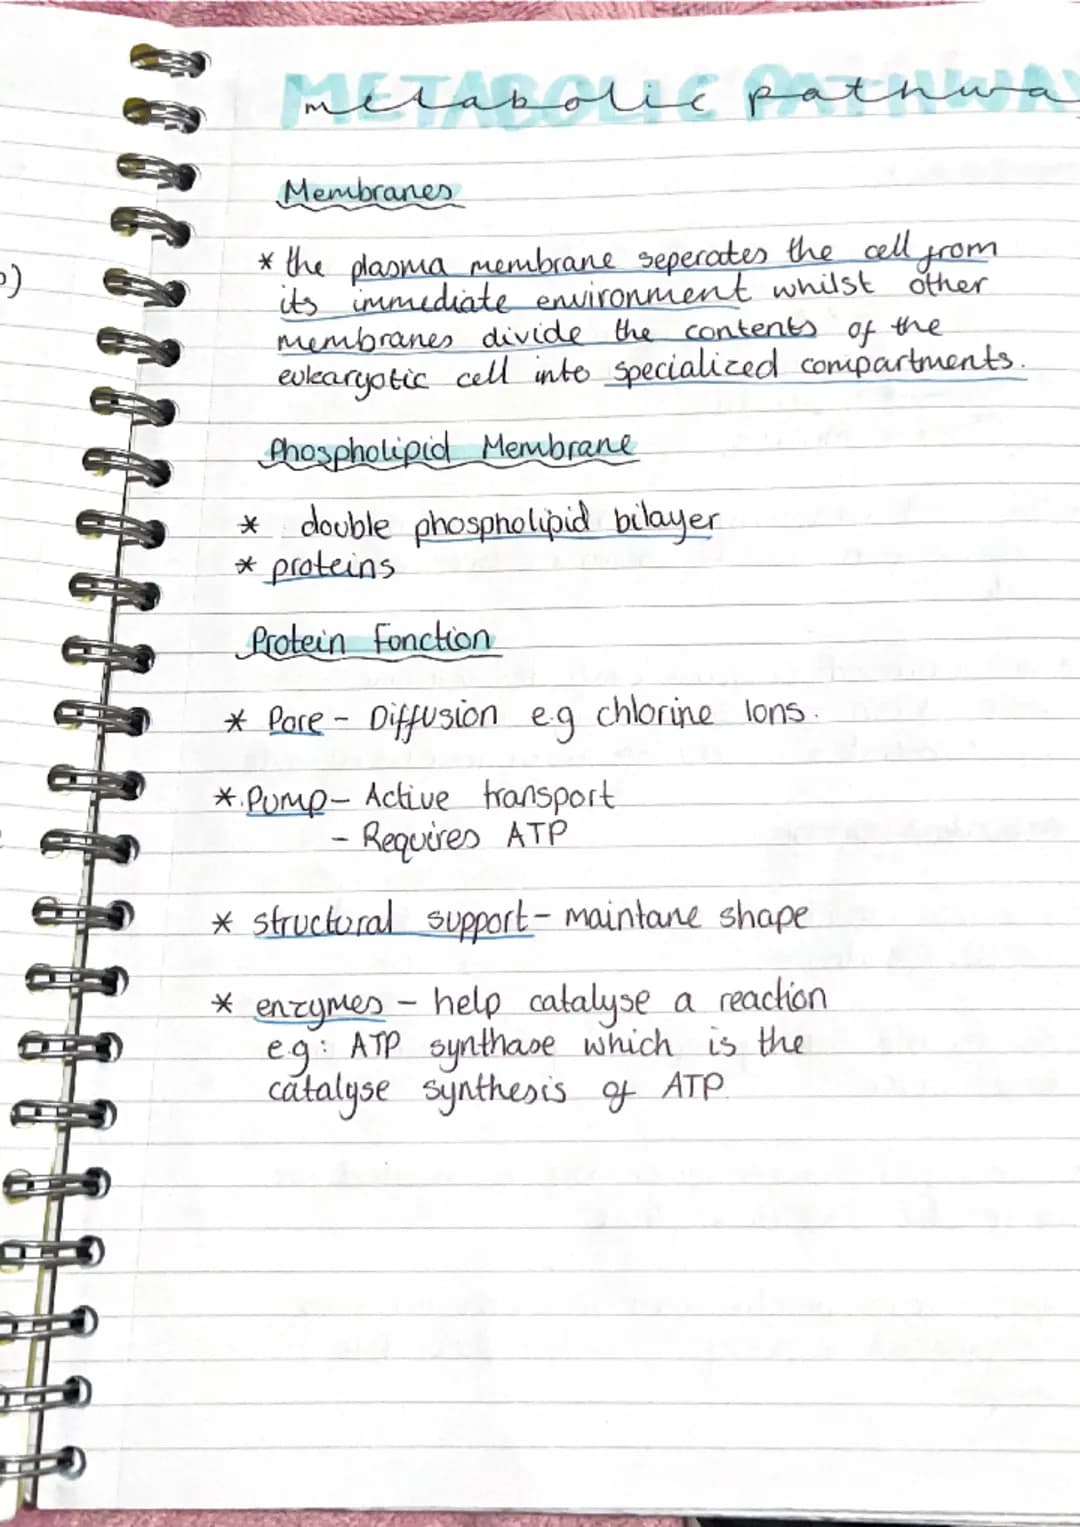 METABOLIC PATHWAY
metabolic pathwa
Membranes
* the plasma membrane seperates the cell from
its immediate environment whilst other
membranes divide the contents of the
eukaryotic cell into specialized compartments.
Phospholipid Membrane
* double phospholipid bilayer
* proteins
Protein Fonction
* Pore - Diffusion e.g chlorine Ions.
* Pump - Active transport
- Requires ATP
* structural support - maintane shape
* enzymes - help catalyse a reaction
e.g: ATP synthase which is the
catalyse synthesis of ATP.